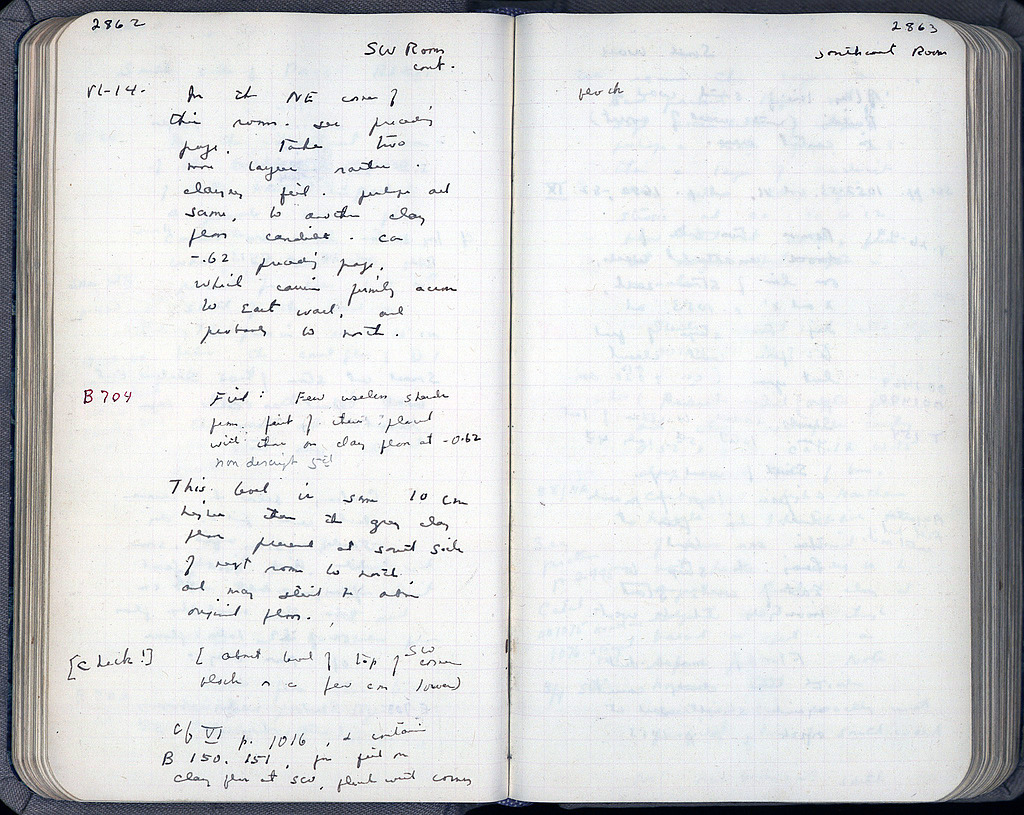 2862
SW Room
cont.
VI-14.
In the NE corner of
this room. see preceding
page. Take two
more layers rather
clayey fill. perhaps all
same, to another clay
floor candidate. ca
-.62 preceding page,
which carries firmly across
to East wall, and
probably to north.
B 704
Fill: Few useless sherds
from fill of this; placed
with those on clay floor at -0.62
non descript 5th
This level is some 10 cm
higher than the grey clay
floor present at south side
of next room to north.
and may still be above
original floor.
[Check!]
[about level of top of SW corner
block or a few cm lower]
cf VI p. 1016, & contain
B 150. 151, for fill on
clay floor at SW, placed with
2863
Southeast Room